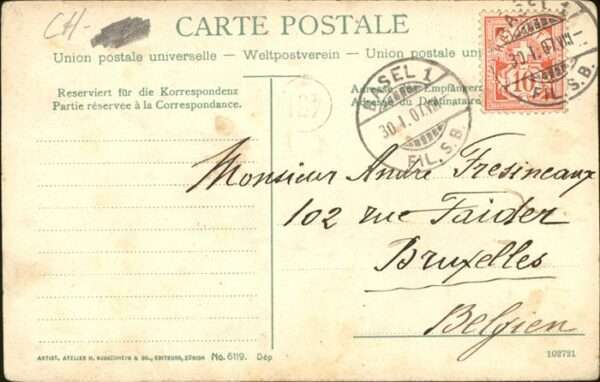 CH-
CARTE POSTALE
Union postale universelle — Weltpostverein — Union postale uni
Reserviert für die Korrespondenz
Partie réservée à la Correspondance.
Adresse des Empfängers
Adresse du Destinataire
BASEL 1
30.I.07.
FIL. S.B.
BASEL 1
30.I.07.
FIL. S.B.
10
Monsieur André Fresineaux
102 rue Faider
Bruxelles
Belgien
ARTIST. ATELIER H. & CO., EDITEURS, ZÜRICH No. 6119. Dép
102721